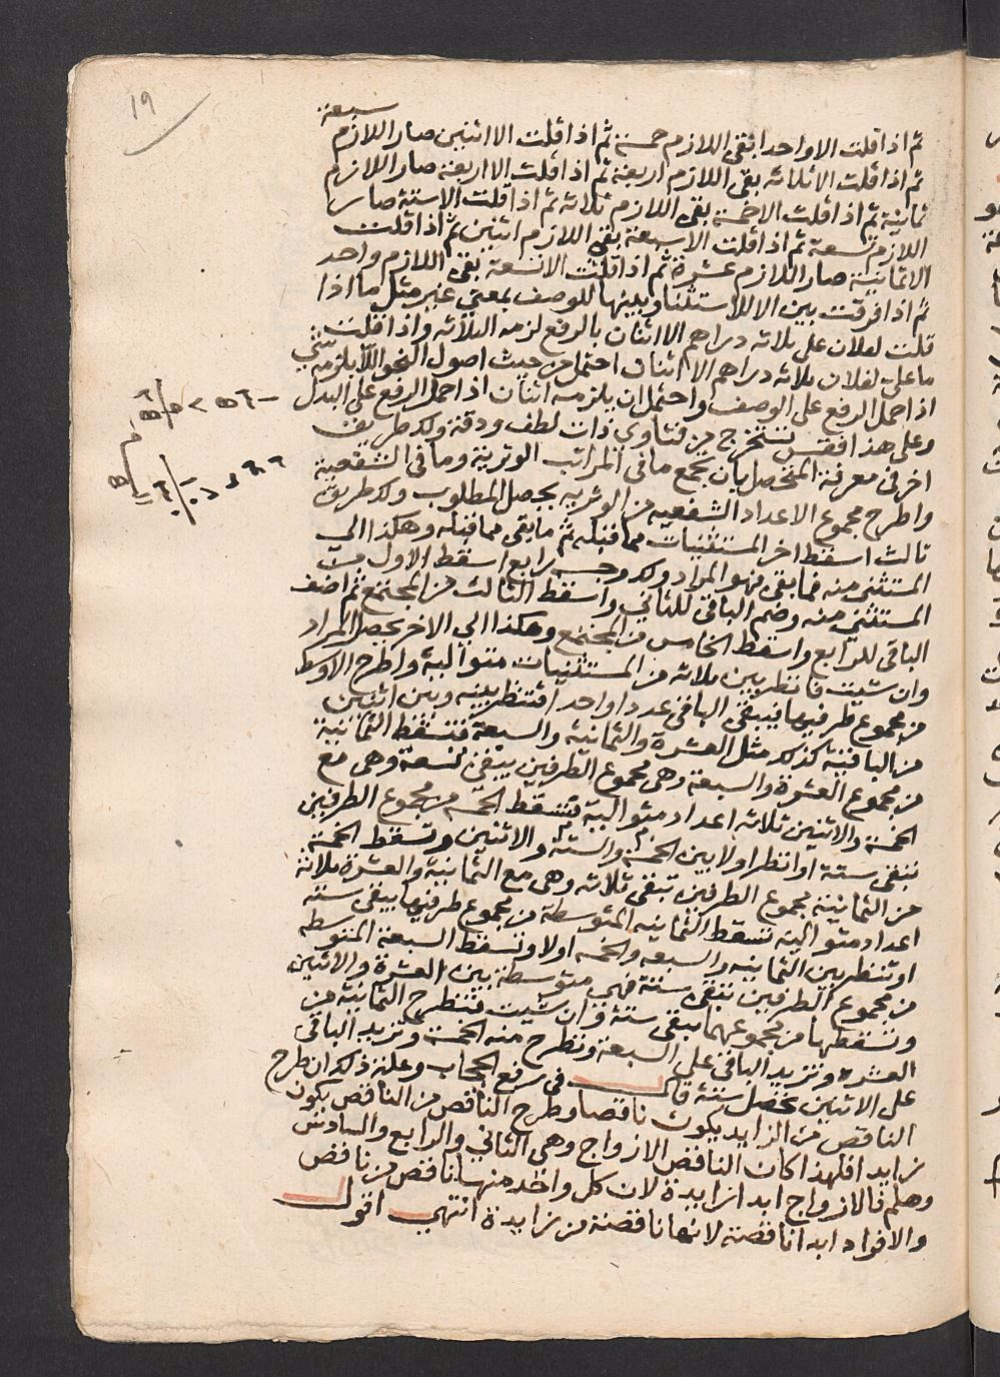 19
سبعة
ثم اذا قلت الا واحدا بقي اللازم خمسة ثم اذا قلت الا اثنين صار اللازم
ثم اذا قلت الا ثلاثة بقي اللازم اربعة ثم اذا قلت الا اربعة صار اللازم
ثمانية ثم اذا قلت الا خمسة بقي اللازم ثلاثة ثم اذا قلت الا ستة صار
اللازم تسعة ثم اذا قلت الا سبعة بقي اللازم اثنين ثم اذا قلت
الا ثمانية صار اللازم عشرة ثم اذا قلت الا تسعة بقي اللازم واحد
ثم اذا فرقت بين الا للاستثنا وبينها للوصف بمعني غير مثل ما اذا
قلت لفلان علي ثلاثة دراهم الا اثنان بالرفع لزمه الثلاثة واذا قلت
ما علي لفلان ثلاثة دراهم الا اثنان احتمل من حيث اصول النحو الا يلزمه شي
اذا حمل الرفع علي الوصف واحتمل ان يلزمه اثنان اذا حمل الرفع علي البدل
وعلي هذا فقس تستخرج من فتاوي ذات لطف ودقة ولك طريق
اخر في معرفة المتحصل بان تجمع ما في المراتب الوترية وما في الشفعية
واطرح مجموع الاعداد الشفعيه من الوتريه يحصل المطلوب ولك طريق
ثالث اسقط اخر المستثنيات مما قبله ثم ما بقي مما قبله وهكذا الي
المستثني منه فما بقي فهو المراد ولك وجه رابع اسقط الاول من
المستثني منه وضم الباقي للثاني واسقط الثالث من المجتمع ثم اضف
الباقي للرابع واسقط الخامس من المجتمع وهكذا الي الاخر يحصل المراد
وان شيت فانظر بين ثلاثة من المستثنيات متوالية واطرح الاوسط
من مجموع طرفيها فيبقي الباقي عددا واحدا فتنظر بينه وبين اثنين
من الباقية كذلك مثل العشرة والثمانية والسبعة فتسقط الثمانية
من مجموع العشرة والسبعة وهي مجموع الطرفين يبقي تسعة وهي مع
الخمسة والاثنين ثلاثة اعداد متوالية فتسقط الخمسة من مجموع الطرفين
تبقي ستة او انظر اولا بين الخمسة والستة والاثنين وتسقط الخمسة
من الثمانية مجموع الطرفين تبقي ثلاثة وهي مع الثمانية والعشرة ثلاثة
اعداد متوالية تسقط الثمانية المتوسطة من مجموع طرفيها يبقي ستة
او تنظر بين الثمانية والسبعة والخمسة اولا وتسقط السبعة المتوسطه
من مجموع الطرفين تبقي ستة فهي متوسطة بين العشرة والاثنين
وتسقطها من مجموعهما يبقي ستة وان شيت فتطرح الثمانية من
العشرة وتزيد الباقي علي السبعة وتطرح منه الخمسة وتزيد الباقي
علي الاثنين تحصل ستة قال في رفع الحجاب وعلة ذلك ان طرح
الناقص من الزايد يكون ناقصا وطرح الناقص من الناقص يكون
زايدا فلهذا كان الناقص الازواج وهي الثاني والرابع والسادس
وهلم فالازواج ابدا زايدة لان كل واحد منها ناقص من ناقص
والافراد ابدا ناقصة لانها ناقصة من زايدة انتهي اقول